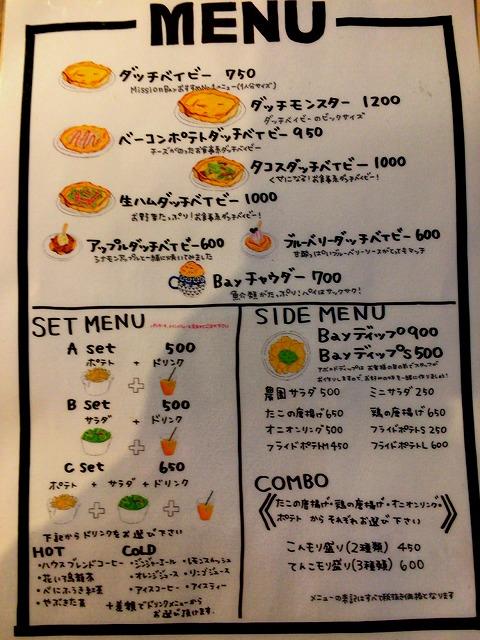 MENU
ダッチベイビー 750
MissionBayおすすめNo.1メニュー(1人分サイズ)
ダッチモンスター 1200
ダッチベイビーのビックサイズ
ベーコンポテトダッチベイビー 950
チーズがのったお食事系ダッチベイビー
タコスダッチベイビー 1000
くせになる!お食事系ダッチベイビー!
生ハムダッチベイビー 1000
お野菜たっぷり!お食事系ダッチベイビー!
アップルダッチベイビー 600
シナモンアップルと一緒に焼いてみました
ブルーベリーダッチベイビー 600
甘酸っぱいブルーベリーソースがとってもマッチ
Bayチャウダー 700
魚介類がたっぷり!パイはサックサク!
SET MENU
A set 500
ポテト + ドリンク
+
B set 500
サラダ + ドリンク
+
C set 650
ポテト + サラダ + ドリンク
+ +
下記からドリンクをお選び下さい
HOT
・ハウスブレンドコーヒー
・花いち烏龍茶
・べにふうき紅茶
・やぶきた茶
COLD
・ジンジャーエール ・レモンスカッシュ
・オレンジジュース ・リンゴジュース
・アイスコーヒー ・アイスティー
+差額でドリンクメニューから
お選び頂けます。
SIDE MENU
Bayディップ 900
BayディップS 500
農園サラダ 500 ミニサラダ 250
たこの唐揚げ 650 鶏の唐揚げ 650
オニオンリング 500 フライドポテトS 250
フライドポテトM 450 フライドポテトL 600
COMBO
《たこの唐揚げ・鶏の唐揚げ・オニオンリング・
ポテト からそれぞれお選び下さい》
こんモリ盛り(2種類) 450
てんこモリ盛り(3種類) 600
メニューの表記はすべて税抜き価格となります